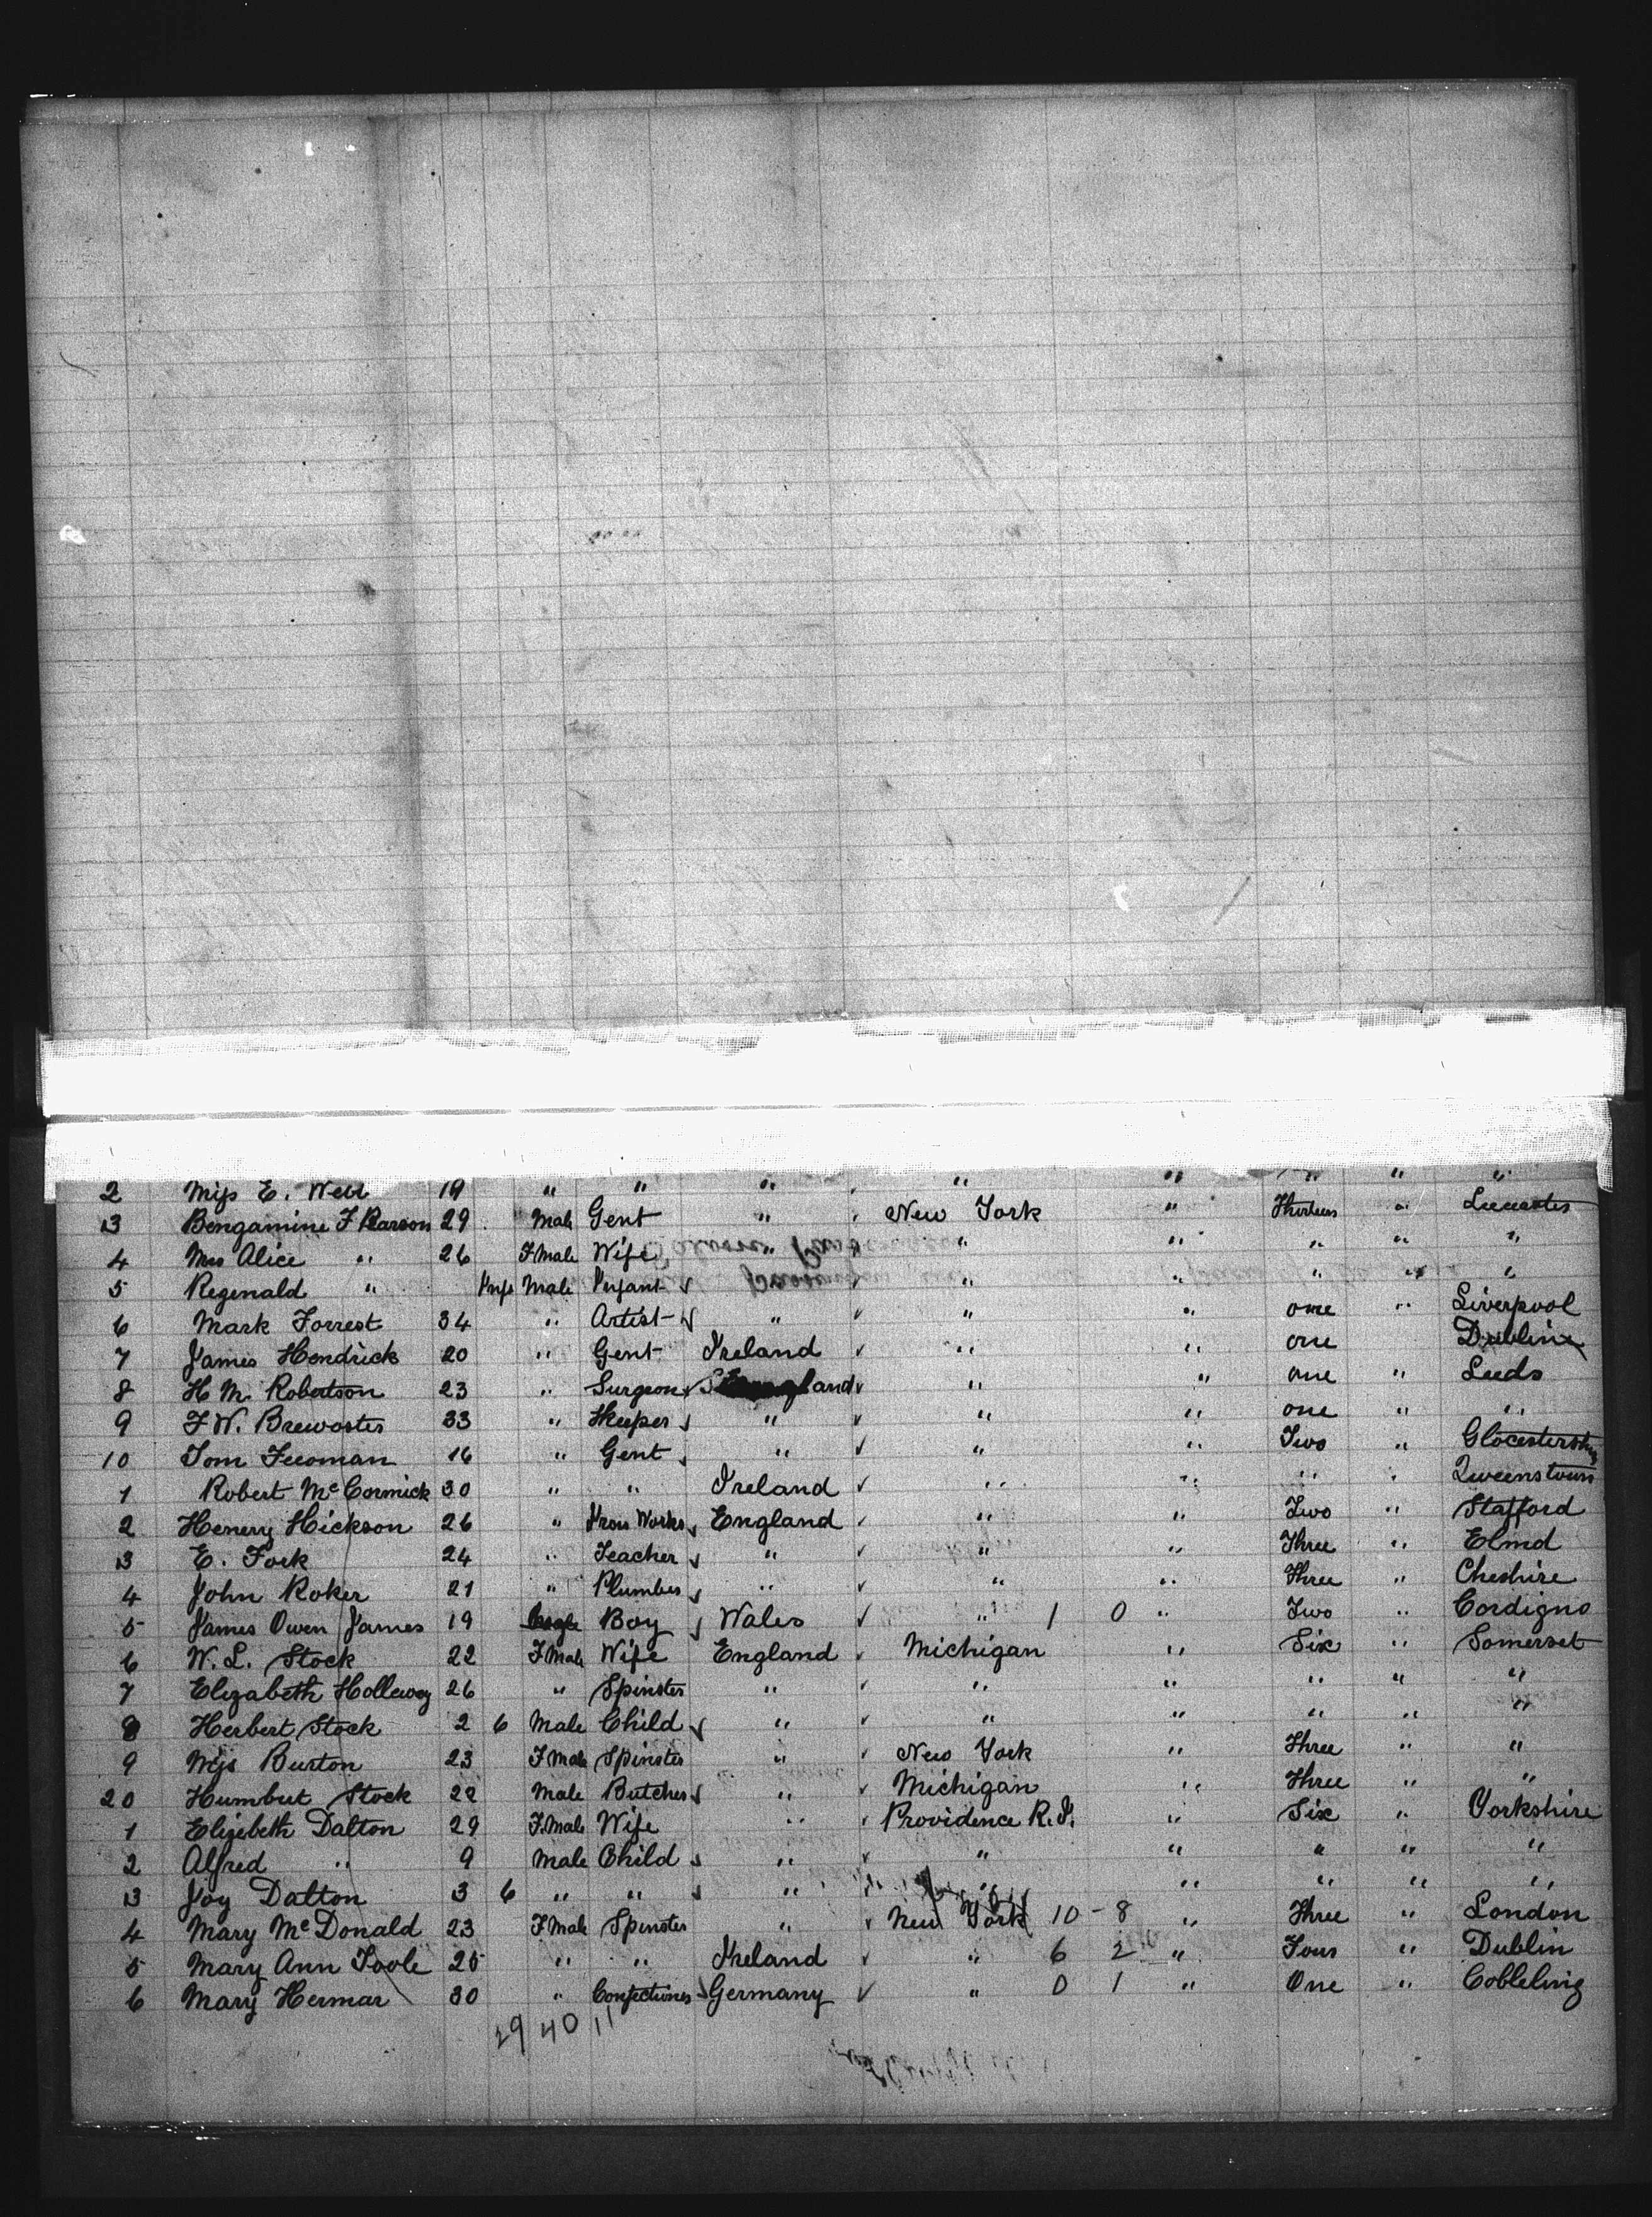 2 Miss E. Webb 19 " " " " " " " "
3 Bengamine F Pearson 29 Male Gent " New York " Thirteen " Leicester
4 Mrs Alice " 26 F.Male Wife " " " " " "
5 Regenald " Inft Male Infant " " " " "
6 Mark Forrest 34 " Artist " " " one " Liverpool
7 James Hendrick 20 " Gent Ireland " " one Dublin
8 H M. Robertson 23 " Surgeon " " one " Leeds
9 F W. Brewoster 33 " HKeeper " " " one " "
10 Tom Freoman 16 " Gent " " " Two "
1 Robert McCormick 30 " " Ireland " " " " Queenstown
2 Henery Hickson 26 " Iron Works England " " Two " Stafford
3 E. Fork 24 " Teacher " " " Three " Elmd
4 John Roker 21 " Plumber " " " Three " Cheshire
5 James Owen James 19 Boy Wales " 1 0 " Two " Cordigno
6 W. L. Stock 22 F.Male Wife England Michigan " Six " Somerset
7 Elizabeth Holleway 26 " Spinster " " " " " "
8 Herbert Stock 2 6 Male Child " " " " " "
9 Miss Burton 23 F.Male Spinster " New York " Three " "
20 Humbert Stock 22 Male Butcher " Michigan " Three " "
1 Elizebeth Dalton 29 F.Male Wife " Providence R.I. " Six " Yorkshire
2 Alfred " 9 Male Child " " " " " "
3 Joy Dalton 3 6 " " " " " " " "
4 Mary McDonald 23 F.Male Spinster " New York 10 - 8 " Three " London
5 Mary Ann Toole 25 " " Ireland " 6 2 " Four " Dublin
6 Mary Hermar 30 " Confectioner Germany " 0 1 " One " Cobleling
29 40 11